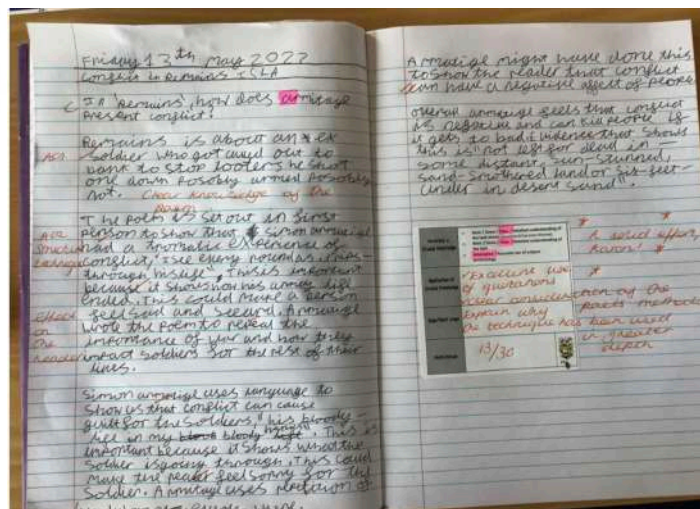 Friday 13th May 2022
Conflict in Remains ISLA
In 'Remains', how does armitage
Present conflict?
Remains is about an ex
Soldier who got called out to
bank to stop looters he shot
one down posobly armed posobly
not. Clear knowledge of the
poem
The Poem is set out in first
person to show that Simon armitige
had a tromatic experience of
conflict, "I see every round as it rips
through his life". This is important
because it shows how his army life
ended. This could make a person
feel sad and
wrote the Poem to reveal the
importance of war and how they
impact soldiers for the rest of their
lives.
effect
on
the
reader
Simon armitige uses language to
Show us that conflict can cause
guilt for the Soldiers, "his bloody
life in my bloody hands". This is
important because it shows what the
Soldier is going through. This could
make the reader feel sorry for the
Soldier. Armitage uses repetition of
Armatige might have done this
to show the reader that conflict
can have a negative affect of people
overall armatige feels that conflict
is negative and can kill people if
it gets to bad. Evidence that shows
this is "not left for dead in
some distant, sun-stunned,
sand-smothered land or six-feet-
under in desert sand".
A solid effort,
Excellent use
of quotations
clear consideration of the
poets methods
Explain why
the technique has been used
in greater
depth
13/30